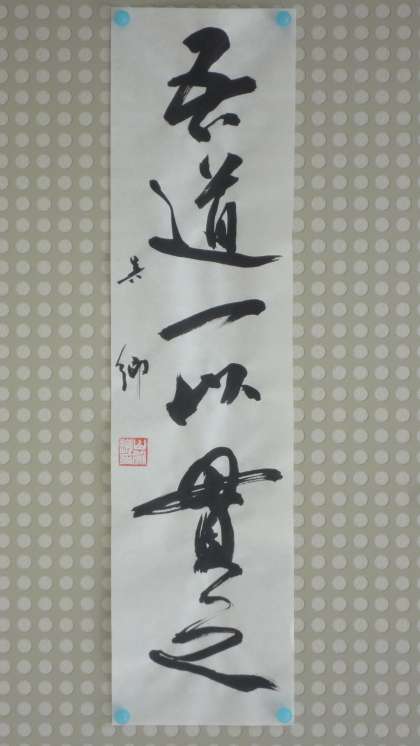 吾道一以貫之